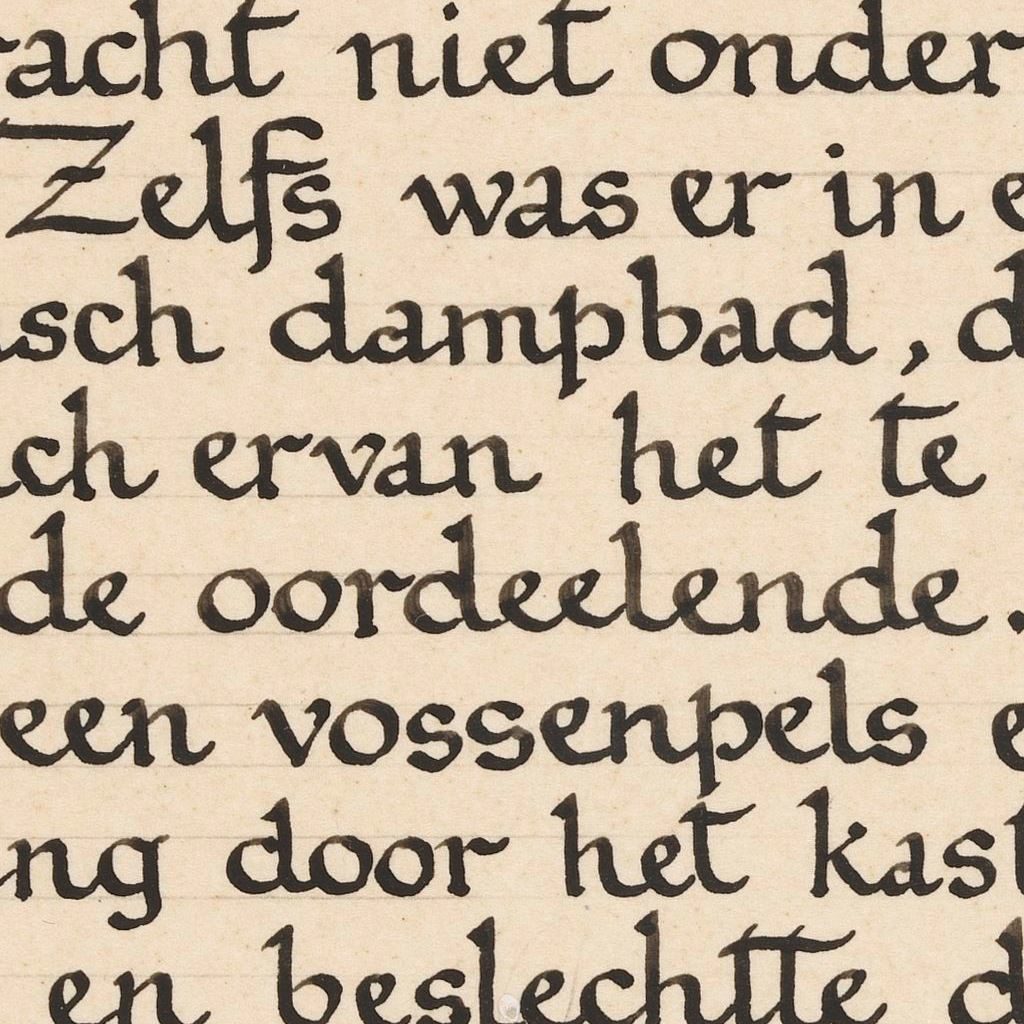 racht niet onder
Zelfs was er in e
isch dampbad, d
ich ervan het te
de oordeelende.
een vossenpels e
ng door het kast
en beslechtte d